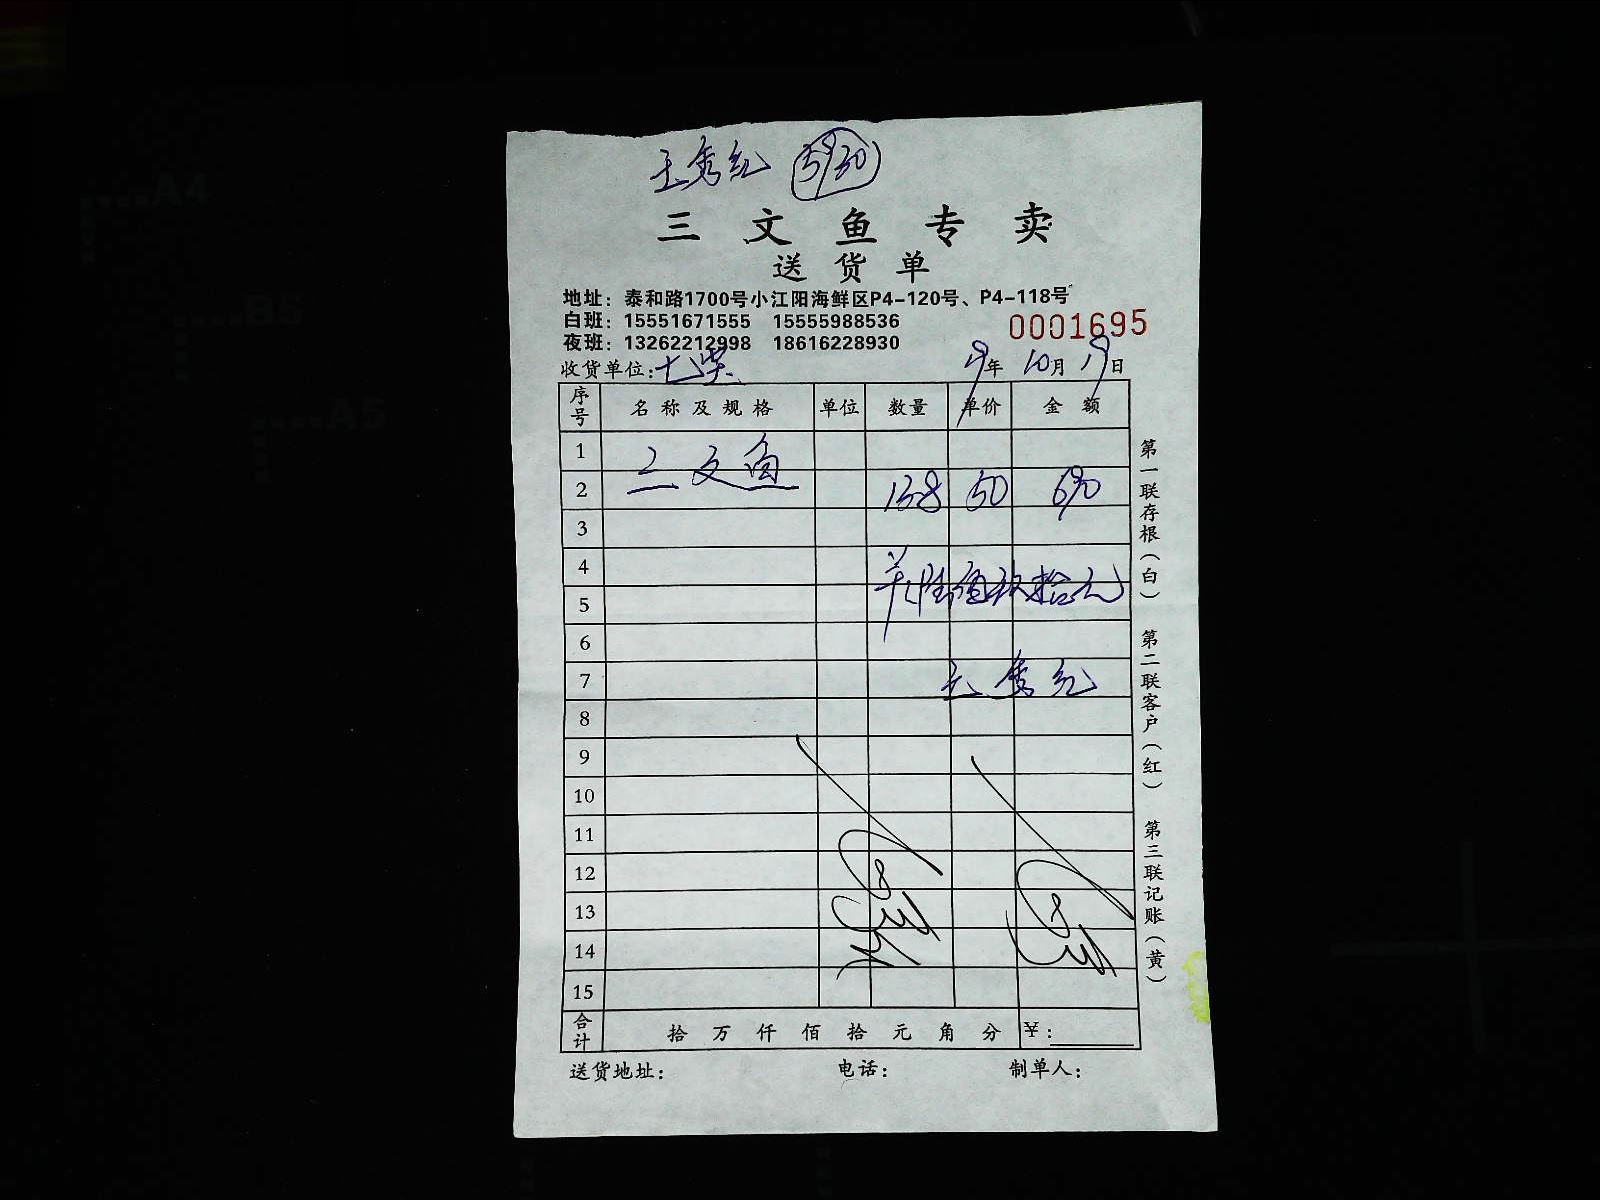 王秀红 5930
三文鱼专卖
送货单
地址：泰和路1700号小江阳海鲜区P4-120号、P4-118号
白班：15551671555 15555988536
0001695
夜班：13262212998 18616228930
收货单位： 19年10月19日
序号 名称及规格 单位 数量 单价 金额
1 三文鱼
2 13.8 50 690
3
4
5 陆佰玖拾元
6
7 王秀红
8
9
10
11
12
13
14
15
合计 拾万仟佰拾元角分 ￥：
送货地址： 电话： 制单人：
第一联存根（白） 第二联客户（红） 第三联记账（黄）
A4
B5
A5